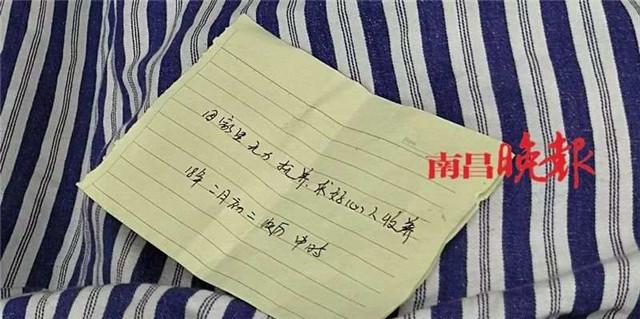 因家里无力抚养.求好心人收养
18年 二月初二 农历 申时
南昌晚報